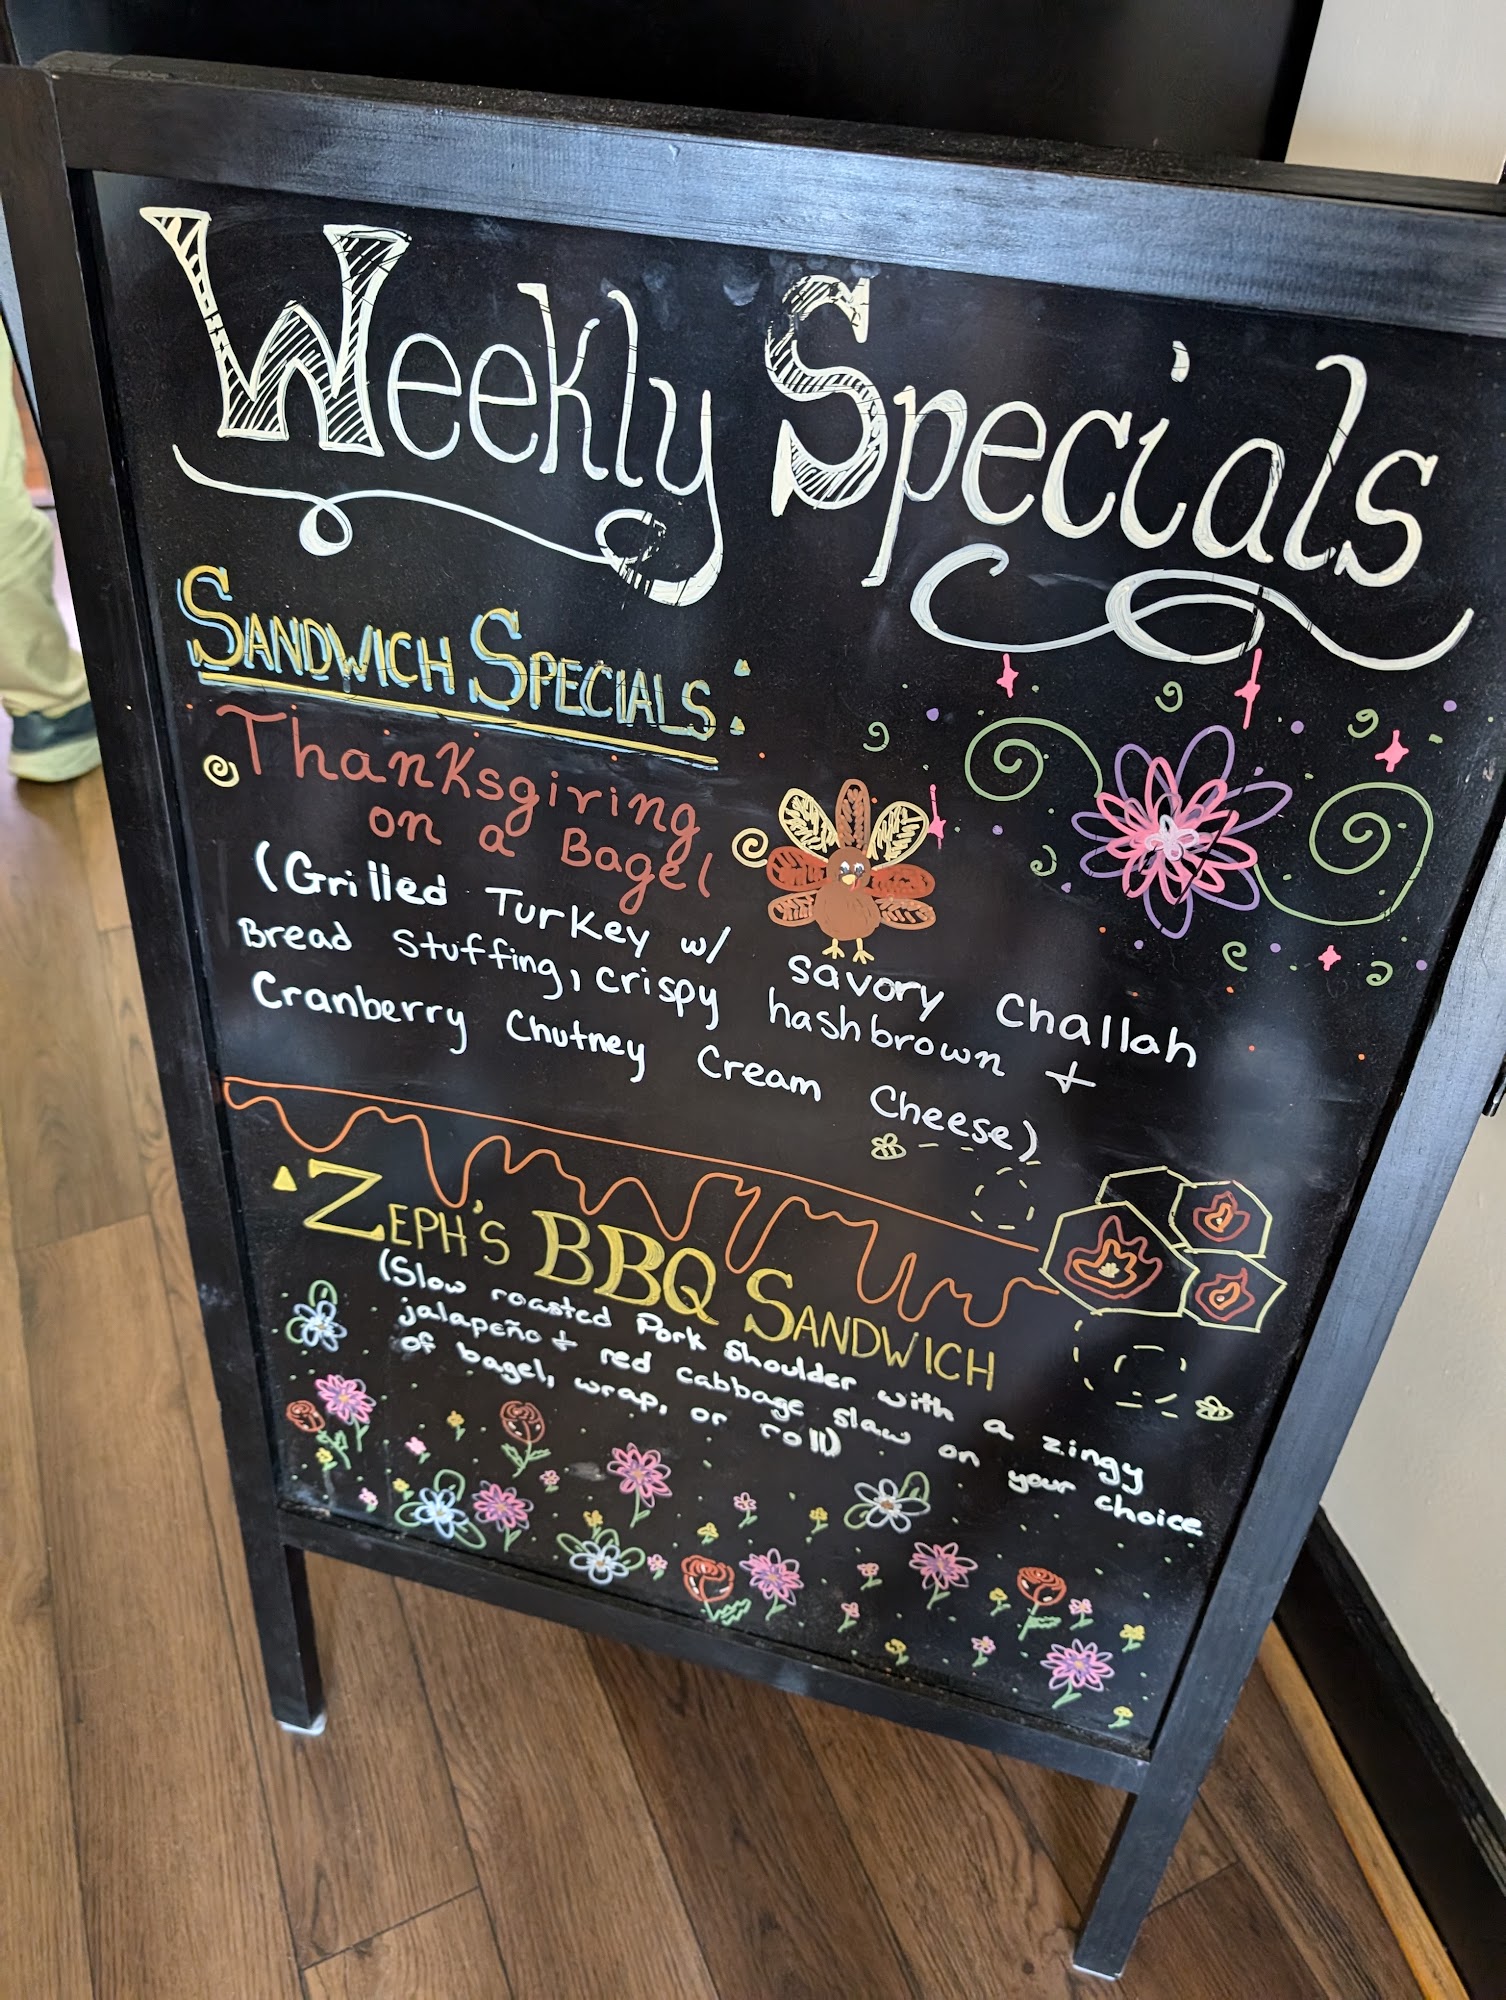 Weekly Specials
SANDWICH SPECIALS:
Thanksgiving
on a Bagel
(Grilled Turkey w/ savory Challah
Bread stuffing, crispy hashbrown +
Cranberry Chutney Cream Cheese)
ZEPH'S BBQ SANDWICH
(Slow roasted Pork shoulder with a zingy
jalapeño + red cabbage slaw on your choice
of bagel, wrap, or roll)